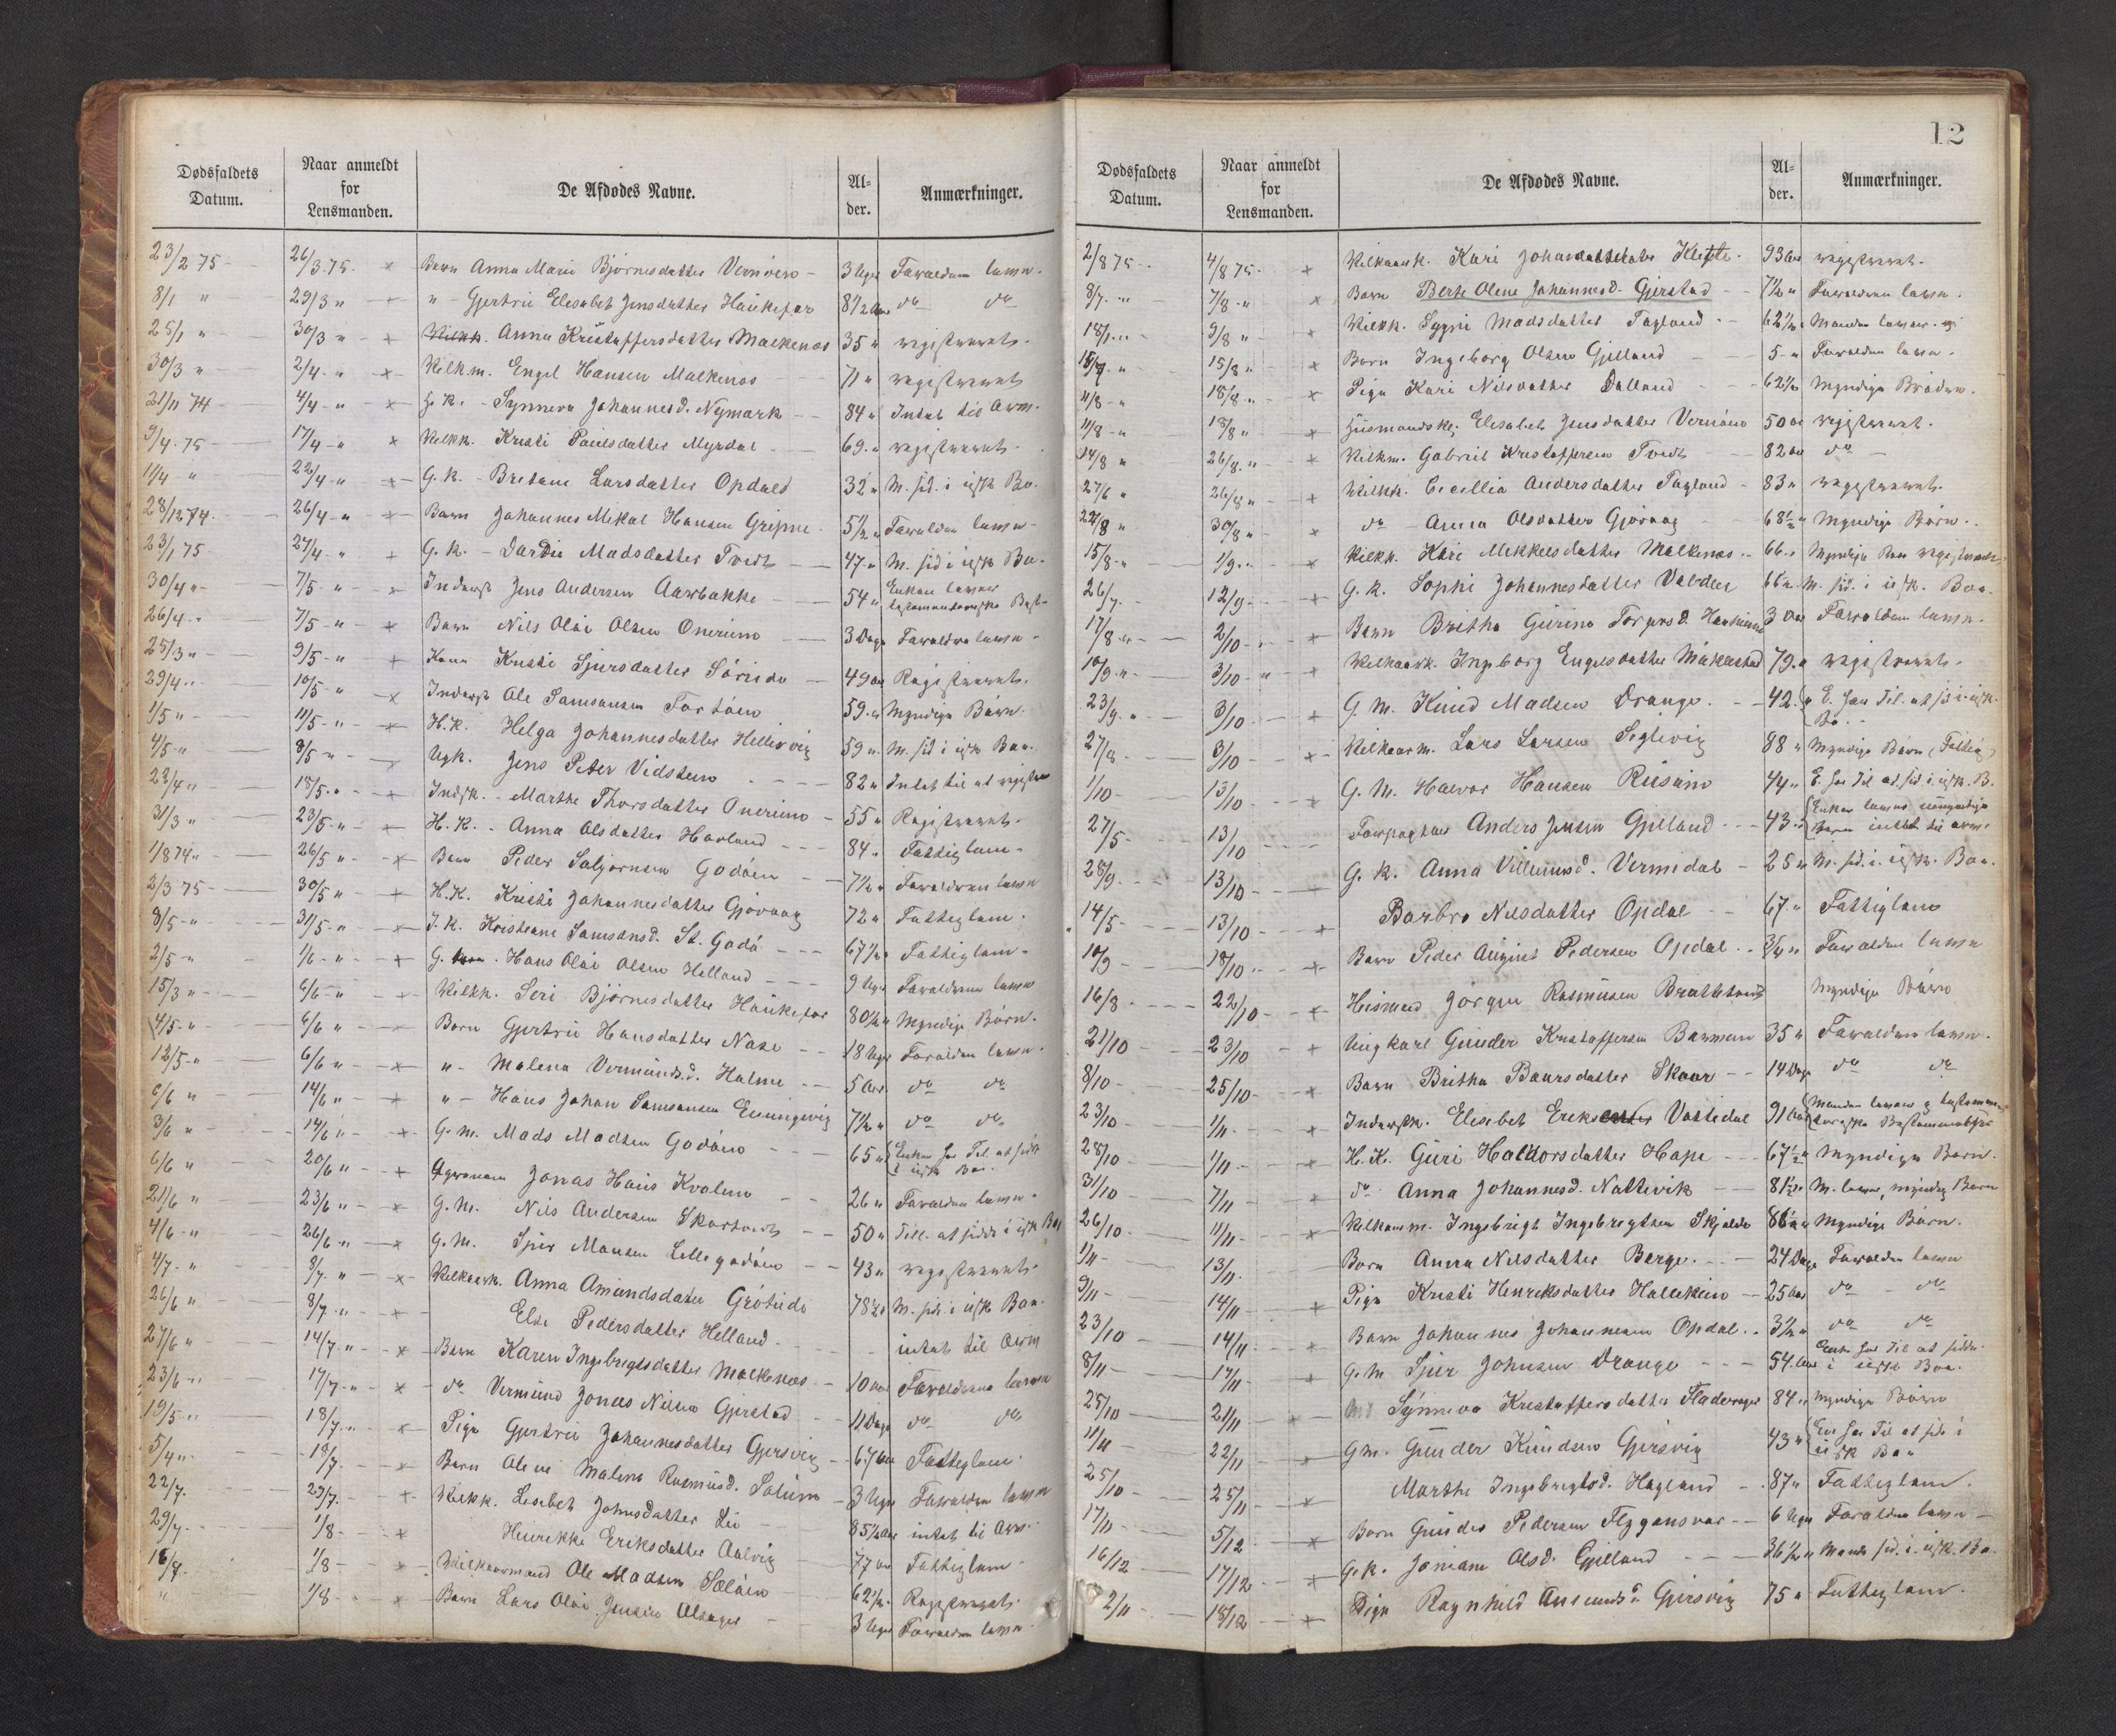 Dødsfaldets Datum. Naar anmeldt for Lensmanden. De Afdødes Navne. Al-der. Anmærkninger.
23/2 75 26/3 75 Barn Anna Marie Bjørnesdatter 3 Uger Forældrene lever
8/1 " 29/3 " " Gjertrie Elesabet Jensdatter Haukefær 8 1/2 Aar do do
25/1 " 30/3 " Anna Kristoffersdatter Malkenes 35 " registreret
30/3 " 2/4 " Vilkm. Engel Hansen Malkenos 71 " registreret
21/11 74 4/4 " H.K. Synneva Johannesd. Nymark 84 " Intet til Arv.
9/4 75 17/4 " Vilkk. Kristi Paulsdatter Myrdal 69 " registreret
1/4 " 22/4 " G.k. Bretane Larsdatter Opdal 32 " M. sid. i uisk Bo.
28/12 74 26/4 " Barn Johannes Mikal Hansen Gripne 5 1/2 " Forældre lever
23/1 75 27/4 " G.k. Dardie Madsdatter Tvedt 47 " M. sid i uisk Bo.
30/4 " 7/5 " Inderst Jens Andersen Aarbakke 54 " Enken lever
26/4 " 7/5 " Barn Nils Olai Olsen Onerimo 3 Dage Forældre lever
25/3 " 9/5 " Kone Kristi Sjursdatter 49 Aar Registreret
29/4 " 10/5 " Inderst Ole Samsonsen 59 " Myndige Børn
1/5 " 11/5 " H.K. Helga Johannesdatter Hellervig 59 " M. sid i uisk Boe.
4/5 " 8/5 " Ugk. Jens Peter Vidsteen 82 " Intet til at registrere
23/4 " 18/5 " Indsk. Marthe Thorsdatter Onerimo 55 " Registreret
31/3 " 23/5 " H.K. Anna Olsdatter Havland 84 " Fattiglem
1/8 74 26/5 " Barn Peder Saljornsen Godøen 7 1/2 " Forældren lever
2/3 75 30/5 " H.K. Kristi Johannesdatter Gjøvaag 72 " Fattiglem
8/5 " 31/5 " I.K. Kristiane Samsonsd. St. Godø 67 1/2 " Fattiglem
2/5 " 1/6 " G. Hans Olai Olsen Helland 9 Uger Forældrene lever
15/3 " 6/6 " Vilkk. Seri Bjørnesdatter Haukefær 80 1/2 " Myndige Børn
4/5 " 6/6 " Barn Gjertrie Hansdatter Nase 18 Uger Forældrene lever
13/5 " 6/6 " " Malena Vermundsd. Halme 5 Aar do do
6/6 " 14/6 " " Hans Johan Samsonsen 7 1/2 " do do
3/6 " 14/6 " G.m. Mads Madsen Godøen 65 " Enken har Til. at sidde i uisk Bo.
6/6 " 20/6 " Jonas Hans Kvalem 26 " Forældren lever
21/6 " 23/6 " G.m. Nils Andersen Skortveit 50 " Till. at sidde i uisk Bo
4/6 " 26/6 " G.m. Sjur Monsen Lillegodøen 43 " registreret
4/7 " 8/7 " Vilkaark. Anna Amundsdater 78 1/2 " M. sid. i uisk Boe.
26/6 " 8/7 " Else Pedersdatter Helland intet til Arv
27/6 " 14/7 " Barn Karen Ingebregtsdatter Malkenos 10 Aar Forældrene lever
23/6 " 17/7 " do Vermund Jonas Nilsen Gjerstad 11 Dage do do
19/5 " 18/7 " Pige Gjertrie Johannesdatter Gjersvig 67 Aar Fattiglem
5/4 " 18/7 Barn Olene Malene Rasmusd. 3 Uger Forældren lever
22/7 23/7 Vilkk. Lisebet Johnsdatter Lie 85 1/2 Aar intet til Arv.
29/7 1/8 Henrikke Eriksdatter Aalvig 77 Aar Fattiglem
1/8 Vilkaarmand Ole Madsen Sæløen 62 1/2 Registreret
" 1/8 Barn Lars Olai Jensen Alsager 3 Uger Forældren lever
12
Dødsfaldets Datum. Naar anmeldt for Lensmanden. De Afdødes Navne. Al-der. Anmærkninger.
2/8 75 4/8 75 Vilkaark. Kari 93 Aar registreret
8/7 " 7/8 " Barn Berte Olene Johannesd. Gjerstad 7 1/2 " Forældren lever
18/7 " 9/8 " Vilkk. Sygni Madsdatter Tagland 62 1/2 " Manden lever
15/8 " Barn Ingeborg Olsen Gjelland 5 " Forældren lever
11/8 " 18/8 " Pige Kari Nilsdatter Dalland 62 1/2 Myndige Brødre
11/8 " 18/8 " Huusmandsk. Elesabet Jensdatter 50 Aar registreret
14/8 " 26/8 " Vilkm. Gabriel Kristoffersen Tvedt 82 Aar do
27/6 " 26/8 " Vilkk. Cecillia Andersdatter Tagland 83 " registreret
22/8 " 30/8 " do Anna Olsdatter Gjøvaag 68 1/2 " Myndige Børn
15/8 " 1/9 " Vilkk. Kari Mikkelsdatter Malkenos 66 "
26/7 12/9 G.k. Sophi Johannesdatter Valder 66 " M. sid. i uisk. Boe.
17/8 " 2/10 Barn Britha Gurine 3 Aar Forældren lever
10/9 " 3/10 " Vilkaark. Ingeborg Engelsdatter Malkestad 79 " registreret
23/9 " 3/10 G.M. Knud Madsen Drange 42 " E. har Til. at sid i uisk. Bo.
27/8 3/10 Vilkaarm. Lars Larsen Siglevig 88 " Myndige Børn (Fattig)
1/10 13/10 G.M. Halvor Hansen 44 " E. har Til at sid. i uisk. B.
27/5 13/10 Anders Jensen Gjelland 43 " Enken lever umyndige Børn intet til arve
28/9 13/10 G.k. Anna Villumsd. Vermidal 25 " M. sid. i uisk. Boe.
14/5 13/10 Barbro Nilsdatter Opdal 67 " Fattiglem
10/9 18/10 Barn Peder August Pedersen Opdal 3/4 " Forældren lever
16/8 22/10 Husmand Jørgen Rasmusen Myndige Børn
21/10 23/10 Ungkarl Gunder Kristoffersen Barmen 35 " Forældren lever
8/10 25/10 Barn Britha Baarsdatter Skaar 14 Dage do do
23/10 1/11 Indersk. Elesebet Eriks Vattedal 91 Aar Manden lever
28/10 1/11 H.K. Guri Haldorsdatter Hope 67 1/2 " Myndige Børn
31/10 7/11 do Anna Johannesd. Nattevik 81 1/2 " M. lever, myndig Børn
26/10 11/11 Vilkaarm. Ingebrigt Ingebregtsen Skjelde 86 1/2 " Myndige Børn
1/11 13/11 Barn Anna Nilsdatter Berge 24 Dage Forældre lever
9/11 14/11 Pige Kristi Henriksdatter 25 Aar do do
23/10 14/11 Barn Johannes Johannesen Opdal 3 1/2 " do do
8/11 17/11 G.M. Sjur Johnsen Drange 54 Aar Enken har Til at sidde i uisk Boe.
25/10 21/11 Synneva Kristoffersdatter 84 " Myndige Børn
11/11 22/11 G.m. Gunder Knudsen Gjersvig 43 " har Til at sidde i uisk Bo
25/10 25/11 Marthe Ingebregtsd. Hagland 87 " Fattiglem
17/11 5/12 Barn Gunder Pedersen Flygansvær 6 Uger Forældre lever
16/12 17/12 G.k. Joniane Olsd. Gjelland 36 1/2 " Mand sid. i uisk. Bo
2/11 18/12 Pige Ragnhild Gjersvig 75 " Fattiglem